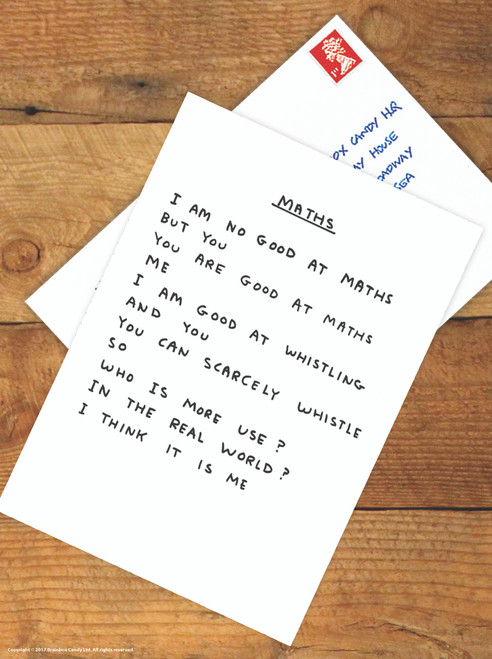 OX CANDY HQ
AY HOUSE
OADWAY
SEA
MATHS
I AM NO GOOD AT MATHS
BUT YOU
YOU ARE GOOD AT MATHS
ME
I AM GOOD AT WHISTLING
AND YOU
YOU CAN SCARCELY WHISTLE
SO
WHO IS MORE USE ?
IN THE REAL WORLD ?
I THINK IT IS ME
Copyright © 2017 Brainbox Candy Ltd. All rights reserved.